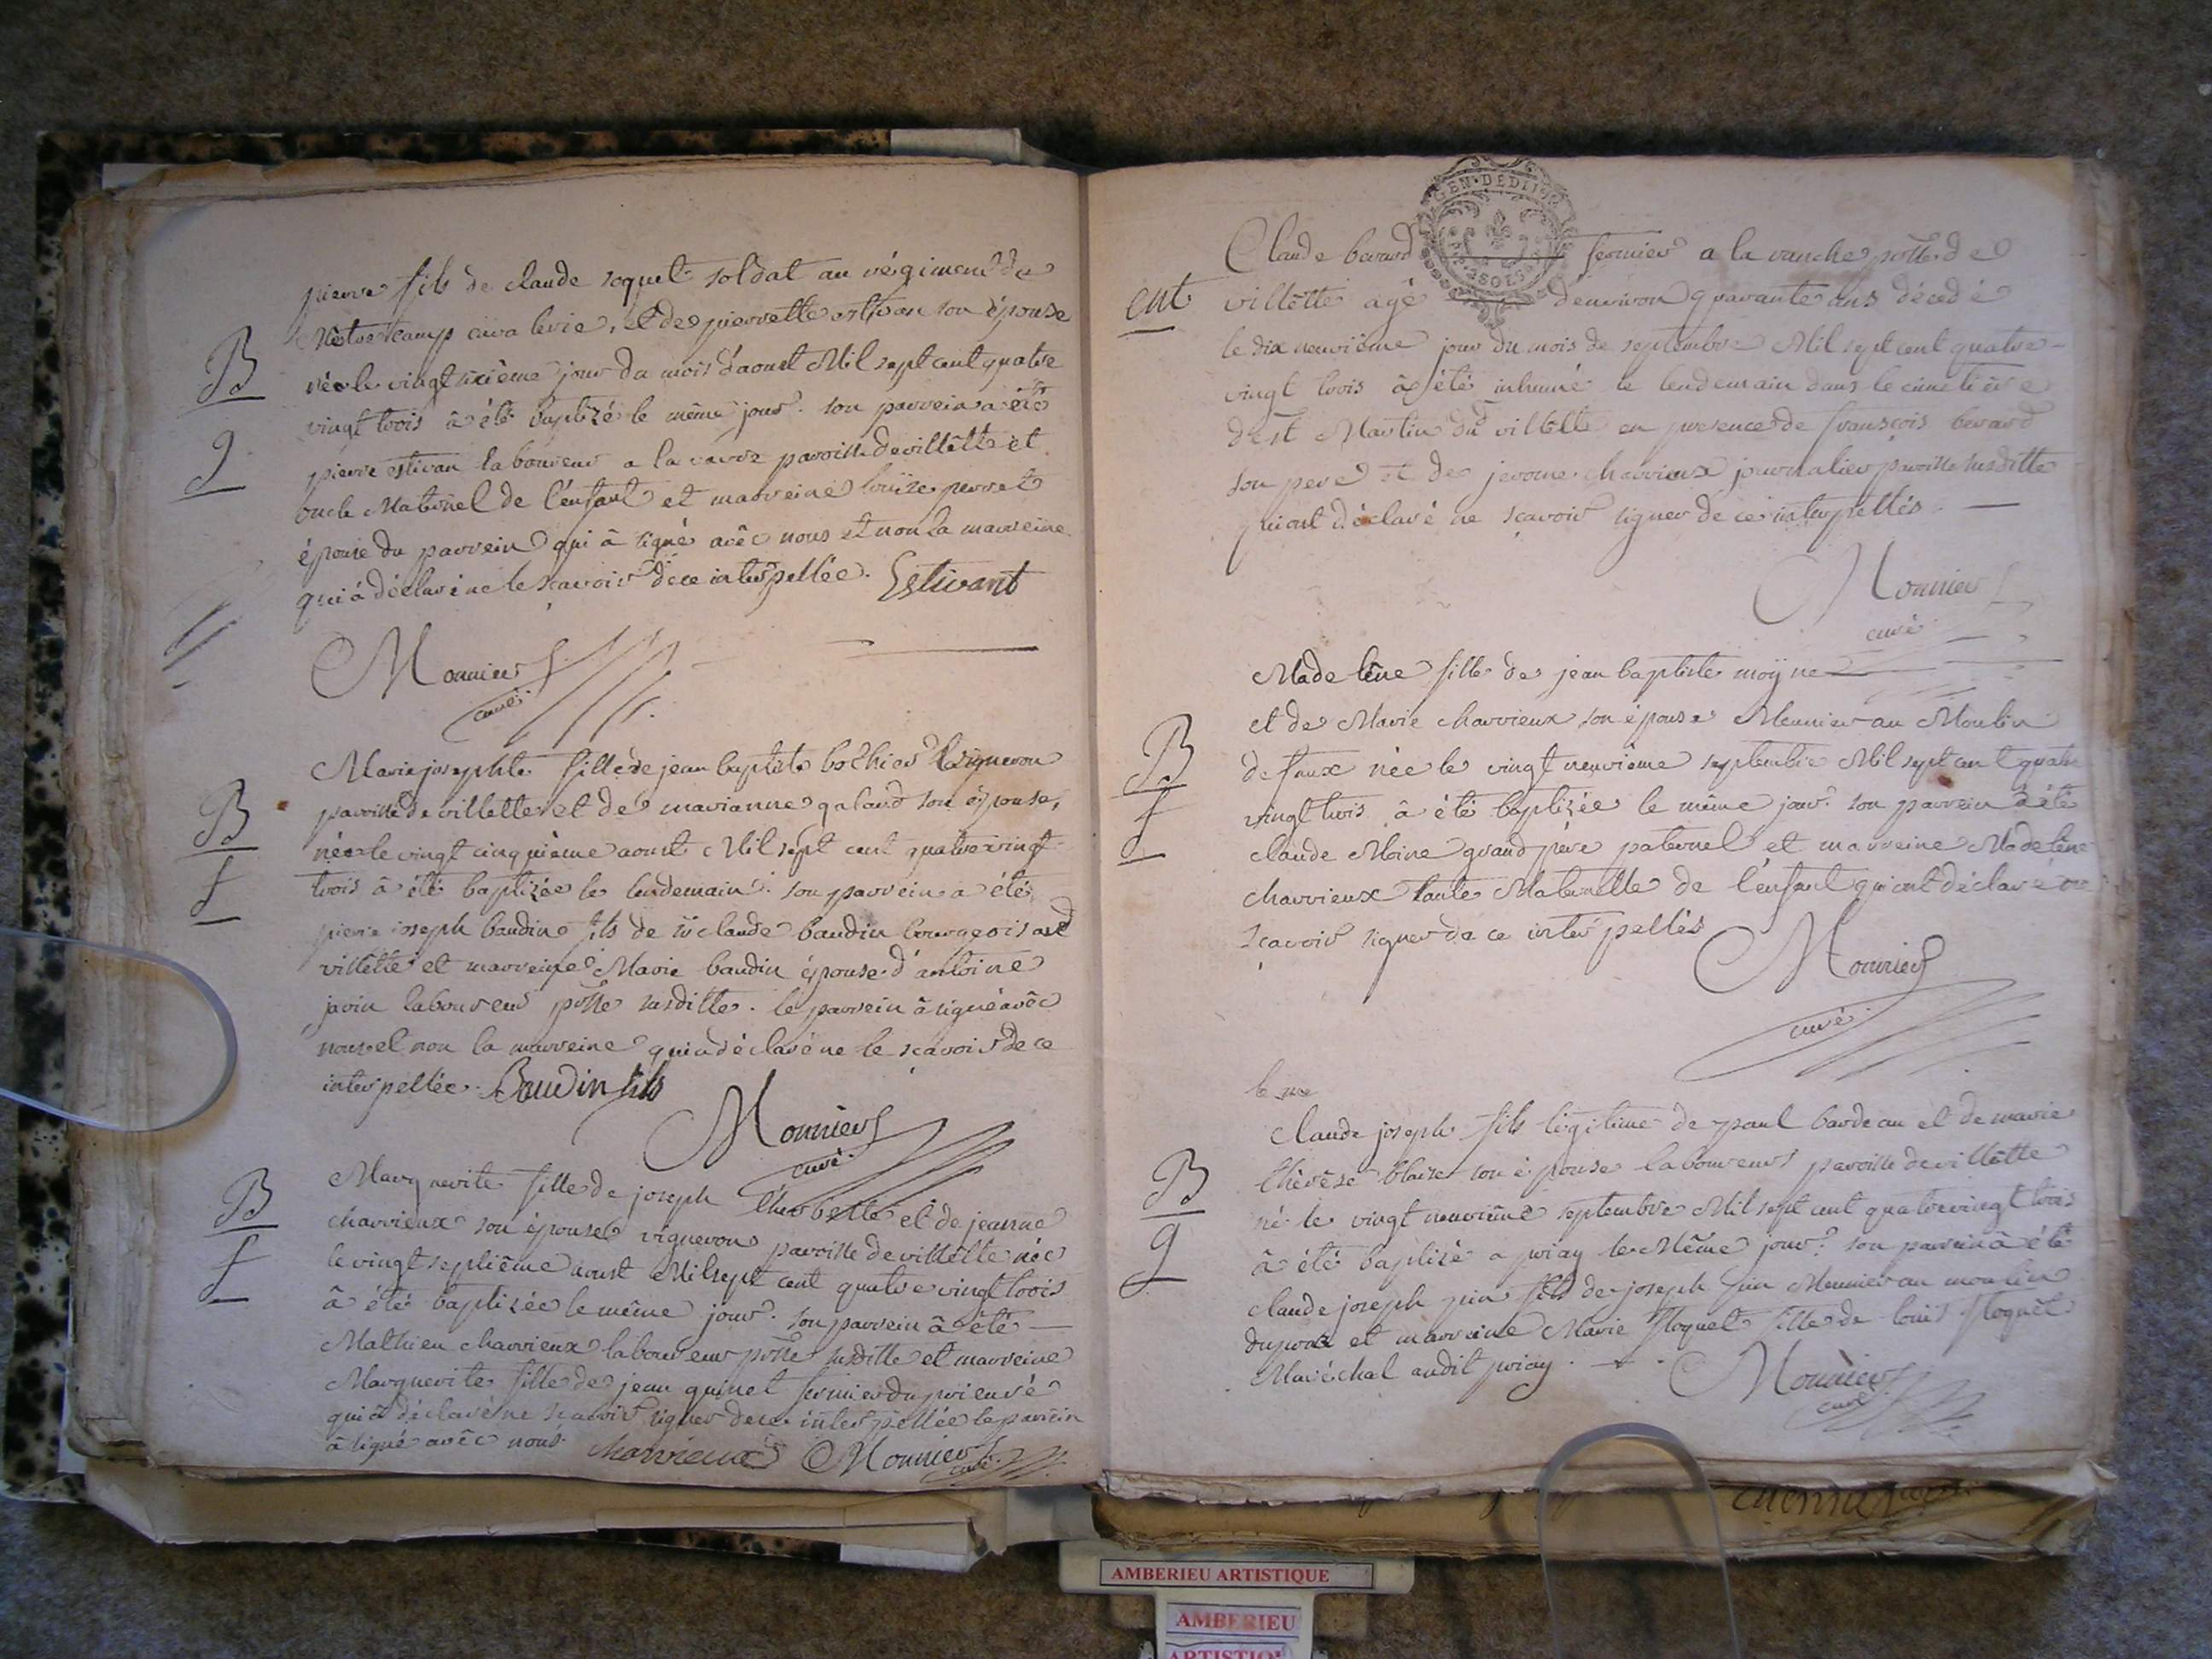 pierre fils de claude roquet soldat au régiment de
Mêtre camp cava lerie, et de pierrette estivan son épouse
née le vingt sixième jour du mois d'aoust Mil sept cent quatre
vingt trois â été baptizé le même jour. son parrein a été
pierre estivan laboureur a la paroisse de villêtte et
oncle Maternel de l'enfant et marreine louize perret
épouse du parrein qui â signé avêc nous et non la marreine
qui â déclaré ne le scavoir de ce interpellée. Estivant
Monnier
curé
B
g
Marie josephte fille de jean baptiste bochier vigneron
paroisse de villette et de marianne galand son épouse,
née le vingt cinquième aoust Mil sept cent quatre vingt
trois â été baptizée le lendemain. son parrein a été
pierre joseph baudin fils de sr claude baudin bourgeois aud
villêtte et marreine Marie baudin épouse d'antoine
javin laboureur psse susditte. le parrein â signé avêc
nous et non la marreine qui a déclaré ne le scavoir de ce
interpellée. Baudin fils
Monnier
curé
B
f
Marguerite fille de joseph l'herbette et de jeanne
charvieux son épouse vigneron paroisse de villêtte née
le vingt septième aoust Mil sept cent quatre vingt trois
â été baptizée le même jour. son parrein â été
Mathieu charvieux laboureur psse susditte et marreine
Marguerite fille de jean quinet fermier du prieuré
qui â déclaré ne scavoir signer de ce interpellée le parrein
â signé avêc nous charvieux Monnier
curé
B
f
Claude berard fermier a la psse de
villêtte agé d'environ quarante ans décedé
le dix neuvième jour du mois de septembre Mil sept cent quatre
vingt trois â été inhumé le lendemain dans le cimetière
de st Martin du villêtte en presence de françois berard
son pere et de jerome charvieux journalier paroisse susditte
qui ont déclaré ne scavoir signer de ce interpellés
ent
GEN·DE·DIJ
Monnier
curé
Madelêne fille de jean baptiste moÿne
et de Marie charvieux son épouse Meunier au Moulin
de faux née le vingt neuvième septembre Mil sept cent quatre
vingt trois â été baptizée le même jour. son parrein â été
claude Moine grand père paternel et marreine Madelêne
charvieux tante Maternelle de l'enfant qui ont déclaré ne
scavoir signer de ce interpellés
Monnier
curé
B
f
Claude joseph fils légitime de paul bardeau et de marie
thérèse blaize son épouse laboureur paroisse de villêtte
né le vingt neuvième septembre Mil sept cent quatre vingt trois
â été baptizé a priay le Même jour. son parrein â été
claude joseph pin fils de joseph pin Meunier au moulin
et marreine Marie floquet fille de louis floquet
Maréchal audit priay.
Monnier
curé
B
g
AMBERIEU ARTISTIQUE
AMBERIEU
ARTISTIQUE